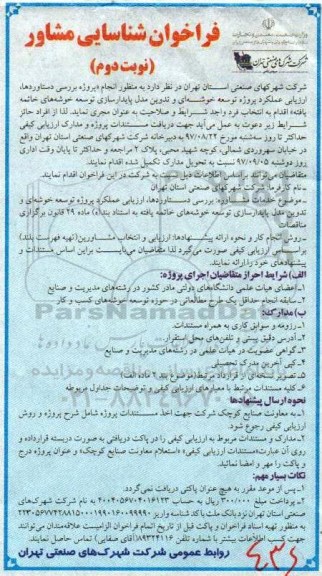 فراخوان شناسایی مشاور
(نوبت دوم)
شرکت شهرکهای صنعتی استان تهران در نظر دارد به منظور انجام «پروژه بررسی دستاوردها،
ارزیابی عملکرد پروژه توسعه خوشه‌ای و تدوین مدل پایدارسازی توسعه خوشه‌های خاتمه
یافته» اقدام به انتخاب فرد واجد شرایط و صلاحیت به عنوان مجری نماید. لذا از افراد حائز
شرایط زیر دعوت به عمل می‌آید جهت دریافت مستندات پروژه و مدارک ارزیابی کیفی
حداکثر تا روز سه‌شنبه مورخ ۹۷/۰۸/۲۲ به دبیرخانه شرکت شهرکهای صنعتی استان تهران واقع
در خیابان سهروردی شمالی، کوچه شهید محبی، پلاک ۲ مراجعه و حداکثر تا پایان وقت اداری
روز دوشنبه ۹۷/۰۹/۰۵ نسبت به تحویل مدارک تکمیل شده اقدام نمایند.
متقاضیان می‌توانند براساس اطلاعات ذیل نسبت به شرکت در این فراخوان اقدام نمایند.
ـ نام کارفرما: شرکت شهرکهای صنعتی استان تهران
ـ موضوع خدمات مشاوره: بررسی دستاوردها، ارزیابی عملکرد پروژه توسعه خوشه‌ای و
تدوین مدل پایدارسازی توسعه خوشه‌های خاتمه یافته به استناد بند(ه) ماده ۲۹ قانون برگزاری
مناقصات
ـ روش انجام کار و نحوه ارائه پیشنهادها: ارزیابی و انتخاب مشاورین(تهیه فهرست بلند)
براساس ارزیابی کیفی صورت می‌گیرد لذا متقاضیان می‌بایست براین اساس مستندات و
پیشنهادهای خود را ارائه نمایند.
الف) شرایط احراز متقاضیان اجرای پروژه:
۱ـ اعضای هیات علمی دانشگاه‌های دولتی مادر کشور در رشته‌های مدیریت و صنایع
۲ـ سابقه انجام حداقل یک طرح مطالعاتی در حوزه توسعه خوشه‌های کسب و کار
ب) مدارک:
۱ـ رزومه و سوابق کاری به همراه مستندات.
۲ـ آدرس دقیق پستی و تلفن‌های محل استقرار.
۳ـ گواهی عضویت در هیات علمی در رشته‌های مدیریت و صنایع
۴ـ کپی آخرین مدرک تحصیلی
۵ـ تصویر نسخه‌ای از قرارداد مرتبط(موضوع بند ۲ ماده الف)
۶ـ کلیه مستندات مرتبط با معیارهای ارزیابی کیفی و توضیحات جداول مربوطه
نحوه ارسال پیشنهادها
۱ـ به معاونت صنایع کوچک شرکت جهت اخذ مستندات پروژه شامل شرح پروژه و روش
ارزیابی کیفی رجوع شود.
۲ـ مدارک و مستندات مربوط به ارزیابی کیفی را در پاکت دریافتی به صورت دربسته قرارداده و
روی آن عبارت«مستندات ارزیابی کیفی» «استعلام معاونت صنایع کوچک» و عنوان پروژه درج
و پاکت را مهر و امضا نمائید.
نکات بسیار مهم:
۱ـ پس از موعد مقرر به هیچ عنوان پاکتی دریافت نمی‌گردد.
۲ـ پرداخت مبلغ ۳۰۰/۰۰۰ ریال به حساب به نام شرکت شهرک‌های
صنعتی استان تهران نزد بانک ملت با کد شناسه واریز
به منظور تهیه اسناد فراخوان و پاکت قبل از تاریخ اتمام فراخوان الزامیست علاقه‌مندان می‌توانند
جهت کسب اطلاعات بیشتر با شماره تلفن ۸۹۳۲۴۱۱۶ (آقای صفایی) تماس حاصل نمایند.
روابط عمومی شرکت شهرک‌های صنعتی تهران